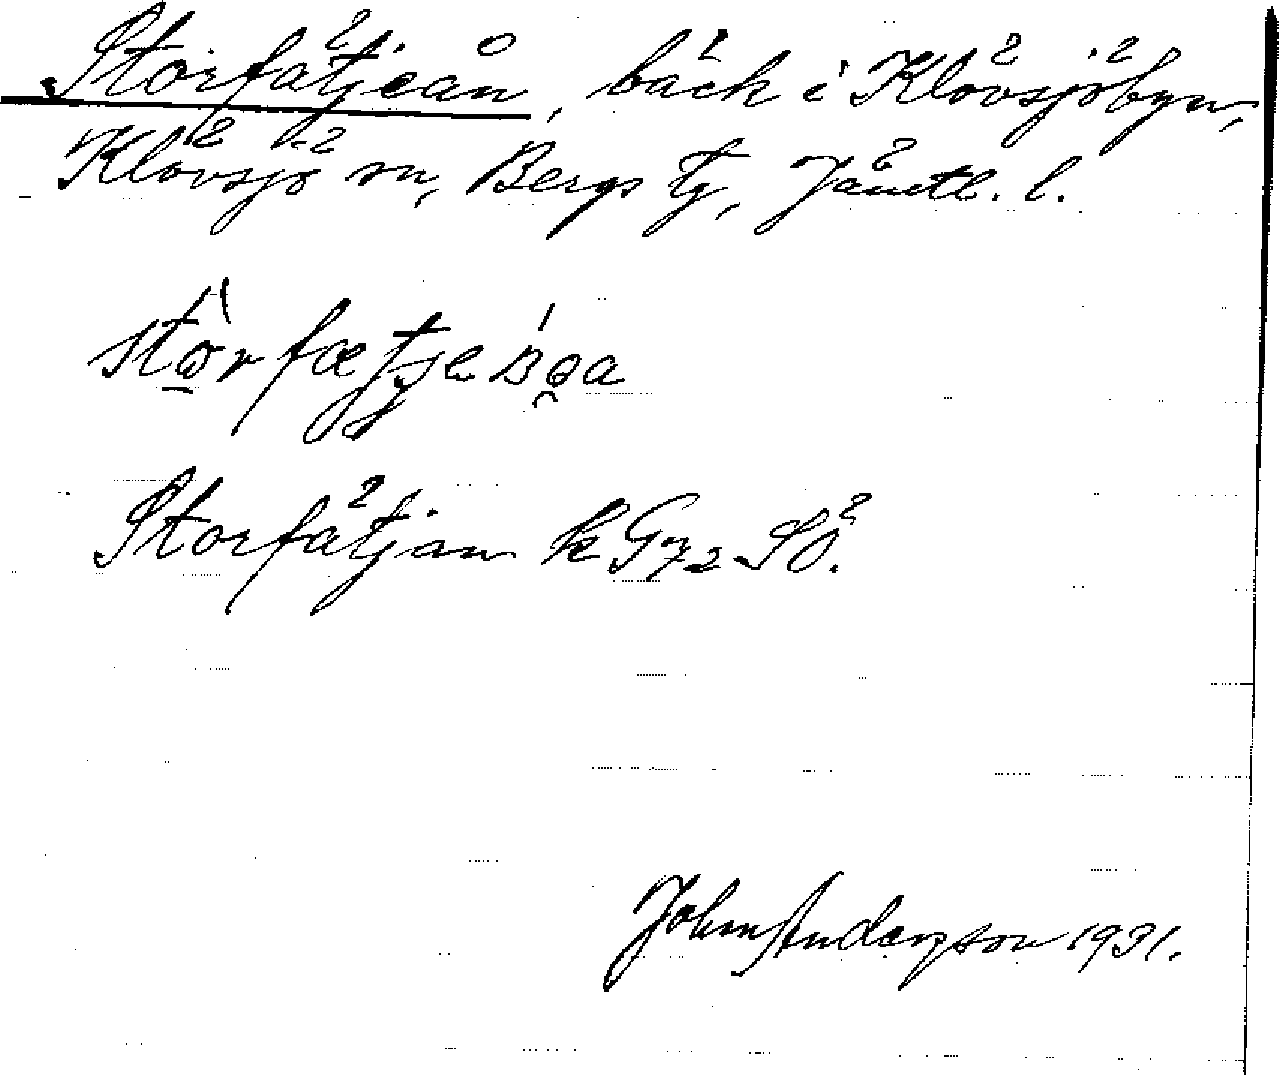 Storfätjeån, bäck i Klövsjöbyn,
Klövsjö sn, Bergs tg, Jämtl. l.
Storfätjan k G72 SÖ.
John Anderson 1931.